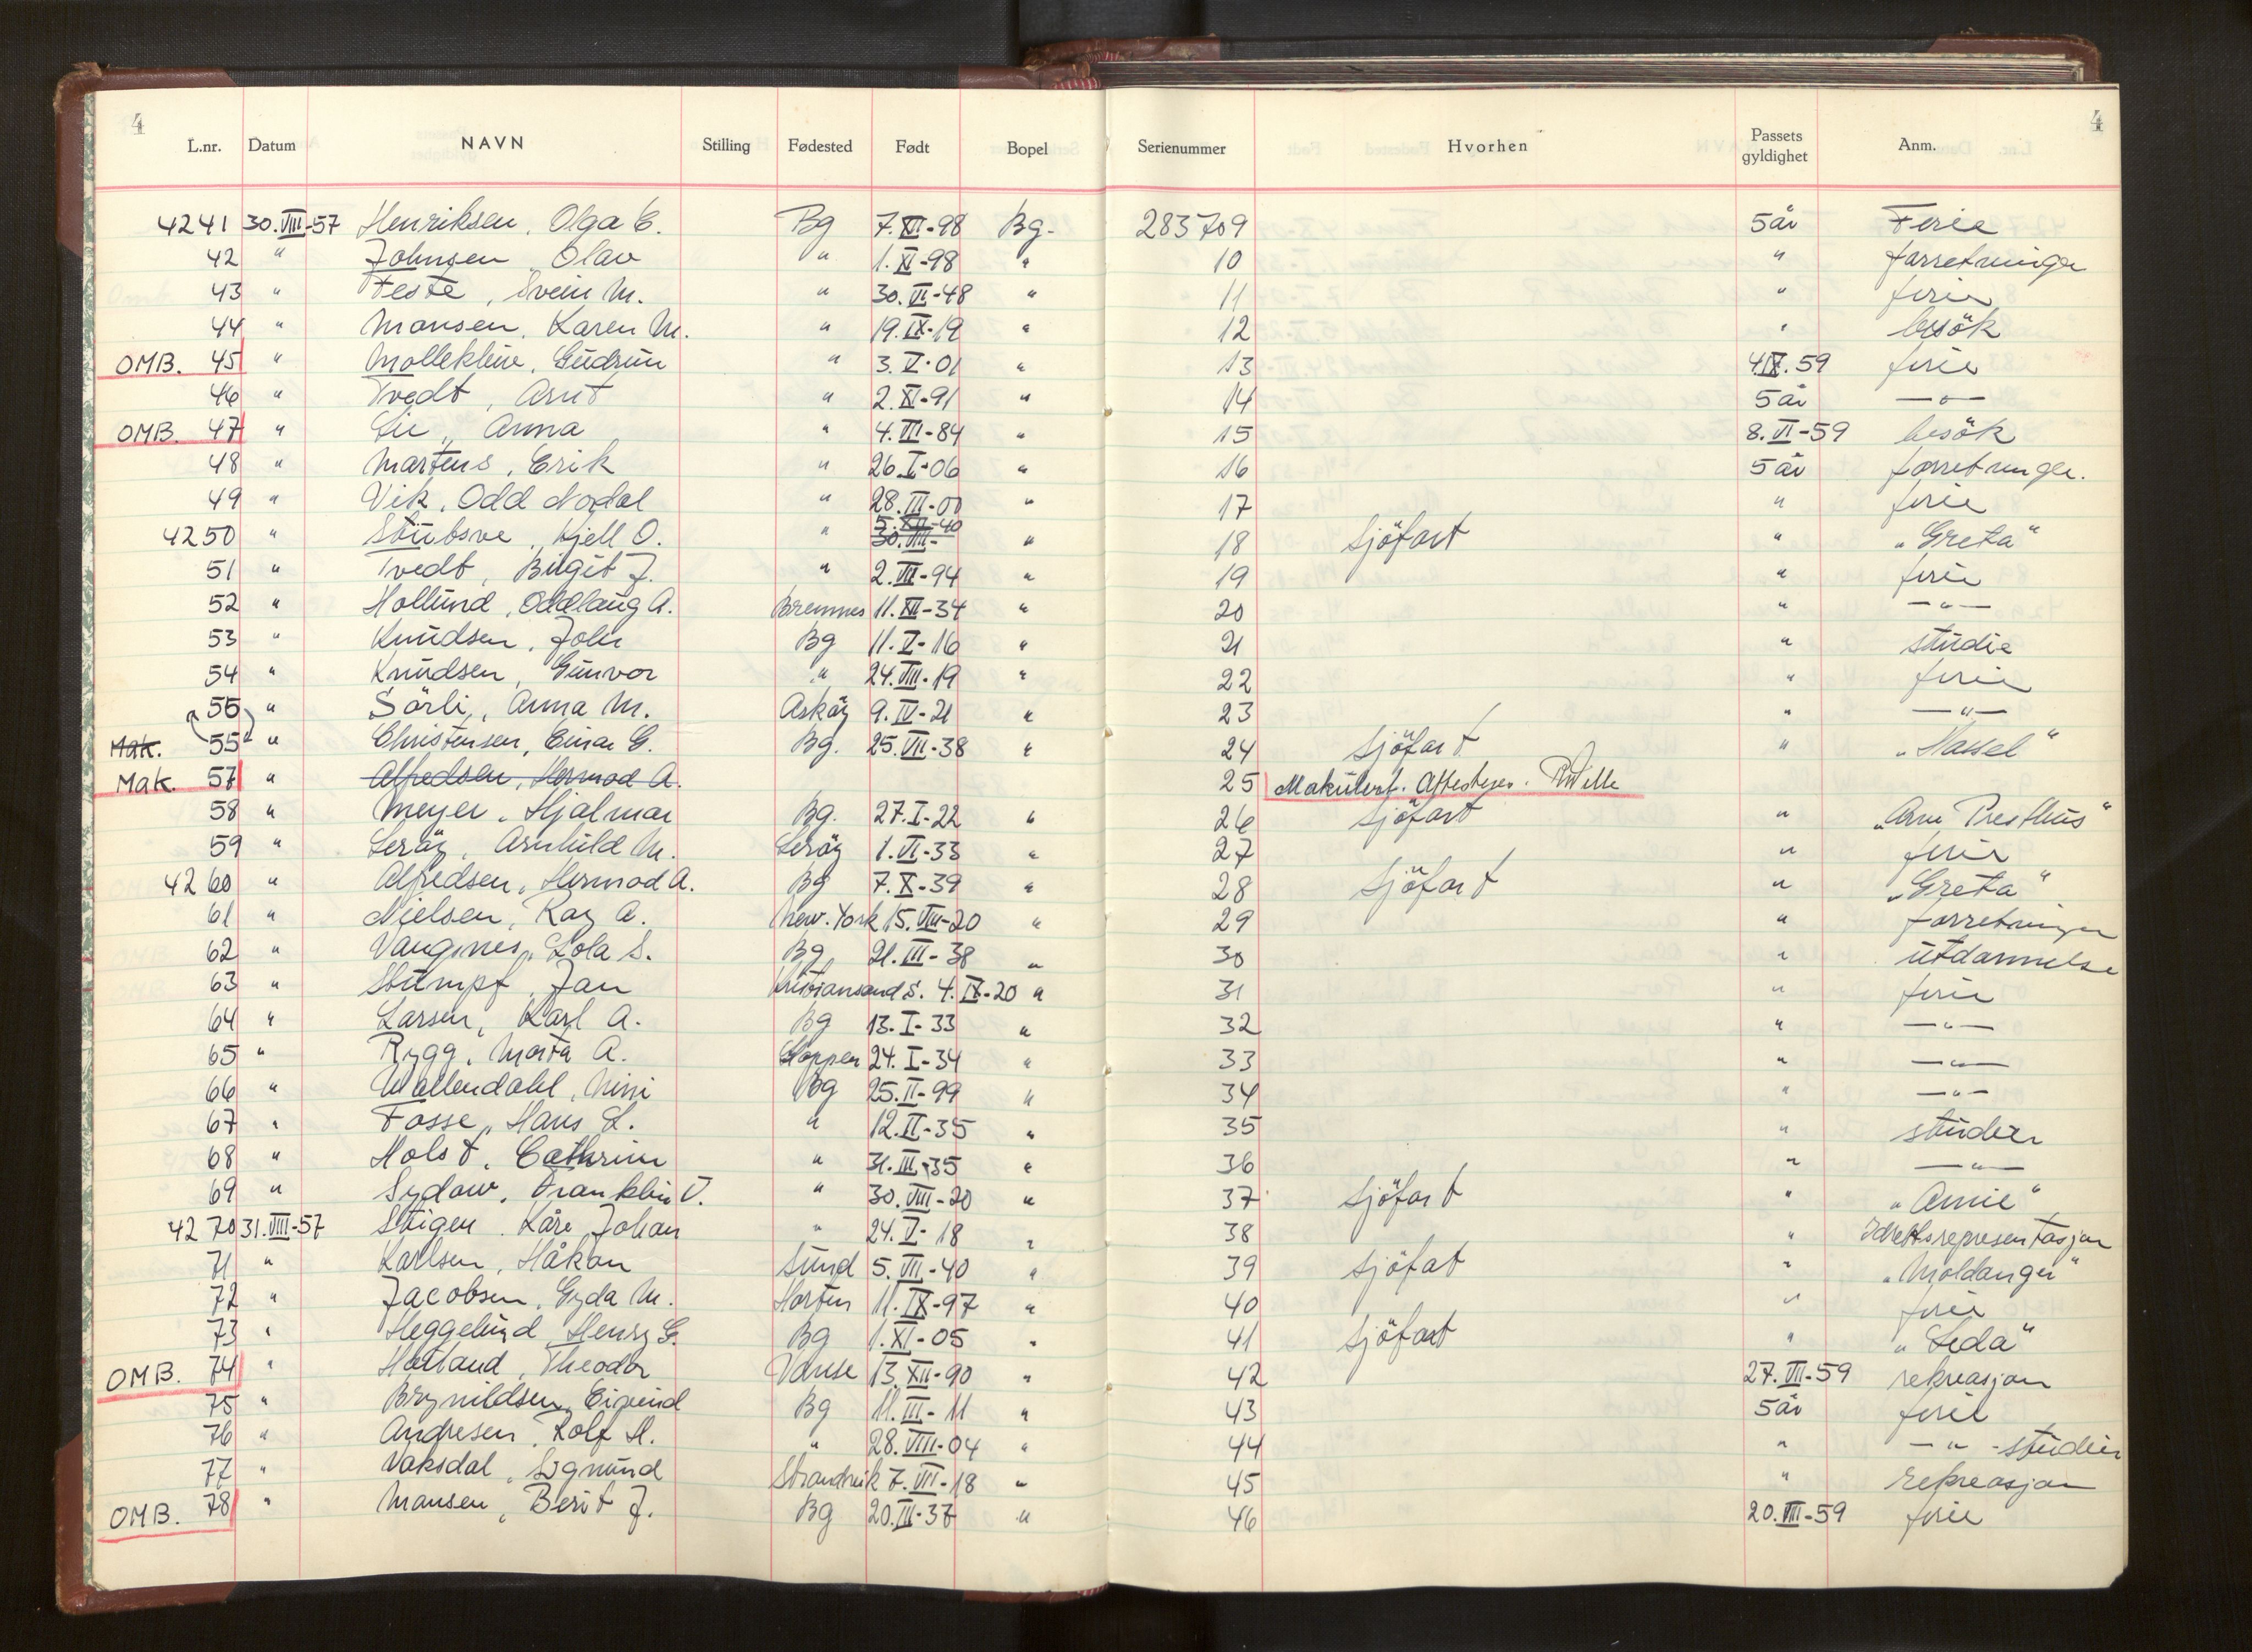 4 4
L.nr. Datum NAVN Stilling Fødested Født Bopel Serienummer Hvorhen Passets gyldighet Anm.
4241 30.VIII-57 Henriksen, Olga E. Bg 7.XII-98 Bg. 283709 5 år Ferie
42 " Johnsen, Olav " 1.XI-98 " 10 " forretninger
43 " Teste, Svein M. " 30.VI-48 " 11 " ferie
44 " Monsen, Karen M. " 19.IX-19 " 12 " besök
OMB. 45 " Mollekleiv, Gudrun " 3.V-01 " 13 4.IX.59 ferie
46 " Tvedt, Arnt " 2.XI-91 " 14 5 år —"—
OMB. 47 " Lie, Anna " 4.III-84 " 15 8.VI-59 besök
48 " Martens, Erik " 26.I-06 " 16 5 år forretninger.
49 " Vik, Odd Nodal " 28.III-00 " 17 " ferie
4250 " Stubsve, Kjell O. " 5.XII-40 30.VIII- " 18 Sjöfart " "Greta"
51 " Tvedt, Birgit J. " 2.VII-94 " 19 " ferie
52 " Hollund, Oddlaug A. Bremnes 11.XII-34 " 20 " —"—
53 " Knudsen, John Bg 11.V-16 " 21 " studie
54 " Knudsen, Gunvor " 24.VIII-19 " 22 " ferie
56 " Sörli, Anna M. Asköy 9.IV-21 " 23 " —"—
Mak. 55 " Christensen, Einar G. Bg. 25.VII-38 " 24 Sjöfart " "Hassel"
Mak. 57 " Alfredsen, Hermod A. 25 Makulert. Attesteres.
58 " Meyer, Hjalmar Bg. 27.I-22 " 26 Sjöfart " "Arne Presthus"
59 " Leröy, Arnhild M. Leröy 1.VI-33 " 27 " ferie
4260 " Alfredsen, Hermod A. Bg 7.X-39 " 28 Sjöfart " "Greta"
61 " Nielsen, Ray A. New. York 15.VIII-20 " 29 " forretninger
62 " Vangsnes, Lola S. Bg, 21.III-38 " 30 " utdannelse
63 " Stumpf, Jan Kristiansand S. 4.IX-20 " 31 " ferie
64 " Larsen, Karl A. Bg 13.I-33 " 32 " —"—
65 " Rygg, Marta A. Gloppen 24.I-34 " 33 " —"—
66 " Wallendahl, Nini Bg 25.II-99 " 34 " —"—
67 " Fosse, Hans L. " 12.II-35 " 35 " studier
68 " Holst, Cathrine " 31.III-35 " 36 " —"—
69 " Sydow, Franklin V. " 30.VIII-20 " 37 Sjöfart " "Annie"
4270 31.VIII-57 Stigen, Kåre Johan " 24.V-18 " 38 " Idrettsrepresentasjon
71 " Karlsen, Håkon Sund 5.VII-40 " 39 Sjöfat " "Moldanger"
72 " Jacobsen, Gyda M. Horten 11.IX-97 " 40 " ferie
73 " Heggelund, Henry G. Bg 1.XI-05 " 41 Sjöfart " "Leda"
OMB. 74 " Hatland, Theodor Vanse 13.XII-90 " 42 27.VII-59 rekreasjon
75 " Brynildsen, Eigund Bg 11.III-11 " 43 5 år ferie
76 " Andresen, Rolf H. " 28.VIII-04 " 44 " —"— studier
77 " Vaksdal, Sigmund Strandvik 7.VII-18 " 45 " rekreasjon
OMB. 78 " Monsen, Berit J. Bg 20.III-37 " 46 20.VIII-59 ferie